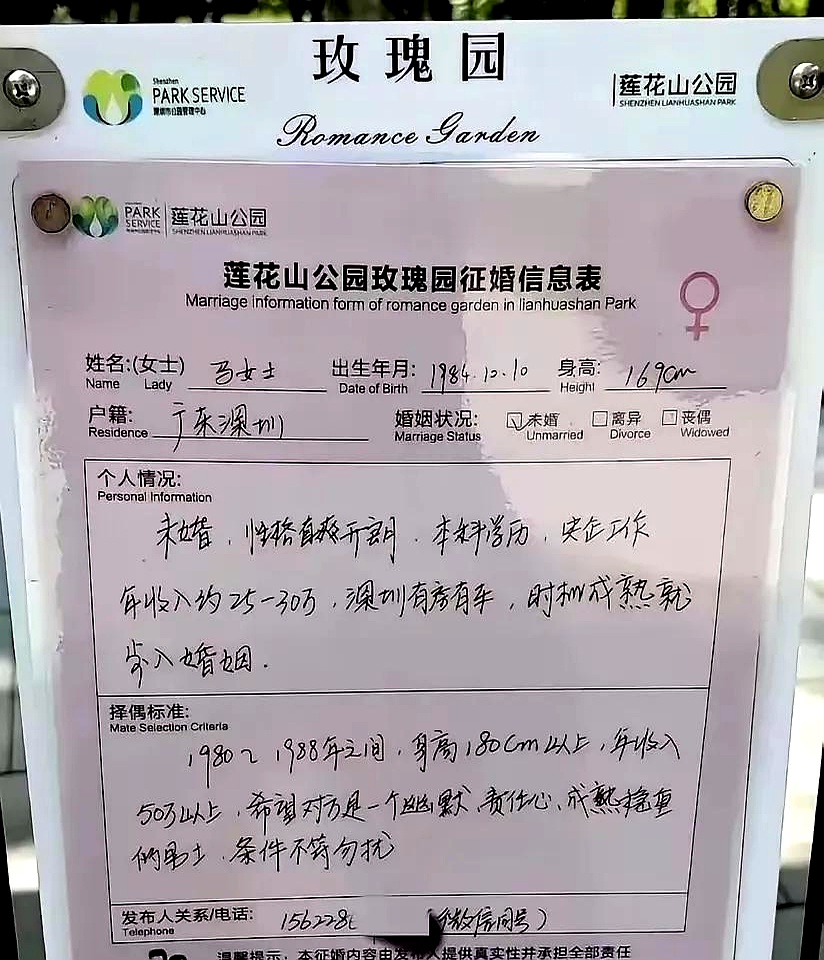 玫瑰园
Shenzhen
PARK SERVICE
深圳市公园管理中心
莲花山公园
SHENZHEN LIANHUASHAN PARK
Romance Garden
PARK SERVICE
莲花山公园
SHENZHEN LIANHUASHAN PARK
莲花山公园玫瑰园征婚信息表
Marriage information form of romance garden in lianhuashan Park
姓名:(女士) 马女士 出生年月: 1984.12.10 身高: 169cm
Name Lady Date of Birth Height
户籍: 广东深圳 婚姻状况: ☑未婚 □离异 □丧偶
Residence Marriage Status Unmarried Divorce Widowed
个人情况:
Personal Information
未婚，性格直爽开朗，本科学历，央企工作
年收入约25-30万，深圳有房有车，时机成熟就
步入婚姻.
择偶标准:
Mate Selection Criteria
1980~1988年之间，身高180cm以上，年收入
50万以上，希望对方是一个幽默、责任心、成熟稳重
的男士，条件不符勿扰
发布人关系/电话: 156228 (微信同号)
Telephone
温馨提示：本征婚内容由发布人提供真实性并承担全部责任